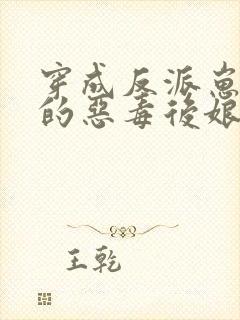 穿成反派崽
的惡毒後娘
王乾